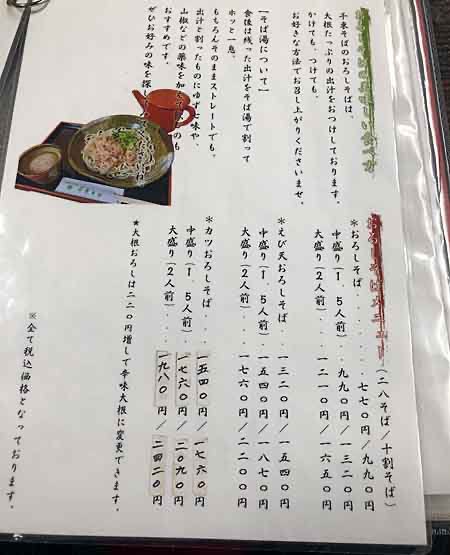 千来そばのおろしそばは、
大根たっぷりの出汁をおつけしております。
かけても、つけても、
お好きな方法でお召し上がりくださいませ。
【そば湯について】
食後は残った出汁をそば湯で割って
ホッと一息。
もちろんそのままストレートでも、
出汁と割ったものにゆず七味や、
山椒などの薬味を加えて
も
おすすめです。
ぜひお好みの味を探し
(二八そば/十割そば)
*おろしそば...........七七〇円/九九〇円
中盛り(1.5人前)...九九〇円/一三二〇円
大盛り(2人前)...一二一〇円/一六五〇円
*えび天おろしそば...一三二〇円/一五四〇円
中盛り(1.5人前)...一五四〇円/一八七〇円
大盛り(2人前)...一七六〇円/二二〇〇円
*カツおろしそば...一五四〇円/一七六〇円
中盛り(1.5人前)...一七六〇円/二〇九〇円
大盛り(2人前)...一九八〇円/二四二〇円
★大根おろしは二二〇円増しで辛味大根に変更できます。
※全て税込価格となっております。